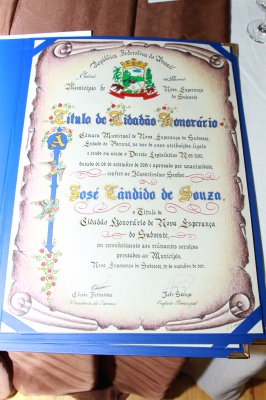 República Federativa do Brasil
Município de Nova Esperança
do Sudoeste
Título de Cidadão Honorário
Câmara Municipal de Nova Esperança do Sudoeste,
Estado do Paraná, no uso de suas atribuições legais
e tendo em vista o Decreto Legislativo Nº
de setembro de e aprovado por unanimidade,
confere ao Ilustríssimo Senhor
José Cândido de Souza,
o Título de
Cidadão Honorário de Nova Esperança
do Sudoeste,
em reconhecimento aos relevantes serviços
prestados ao Município.
Nova Esperança do Sudoeste, de outubro de
Fernandes
Presidente da Câmara
Jair Stange
Prefeito Municipal